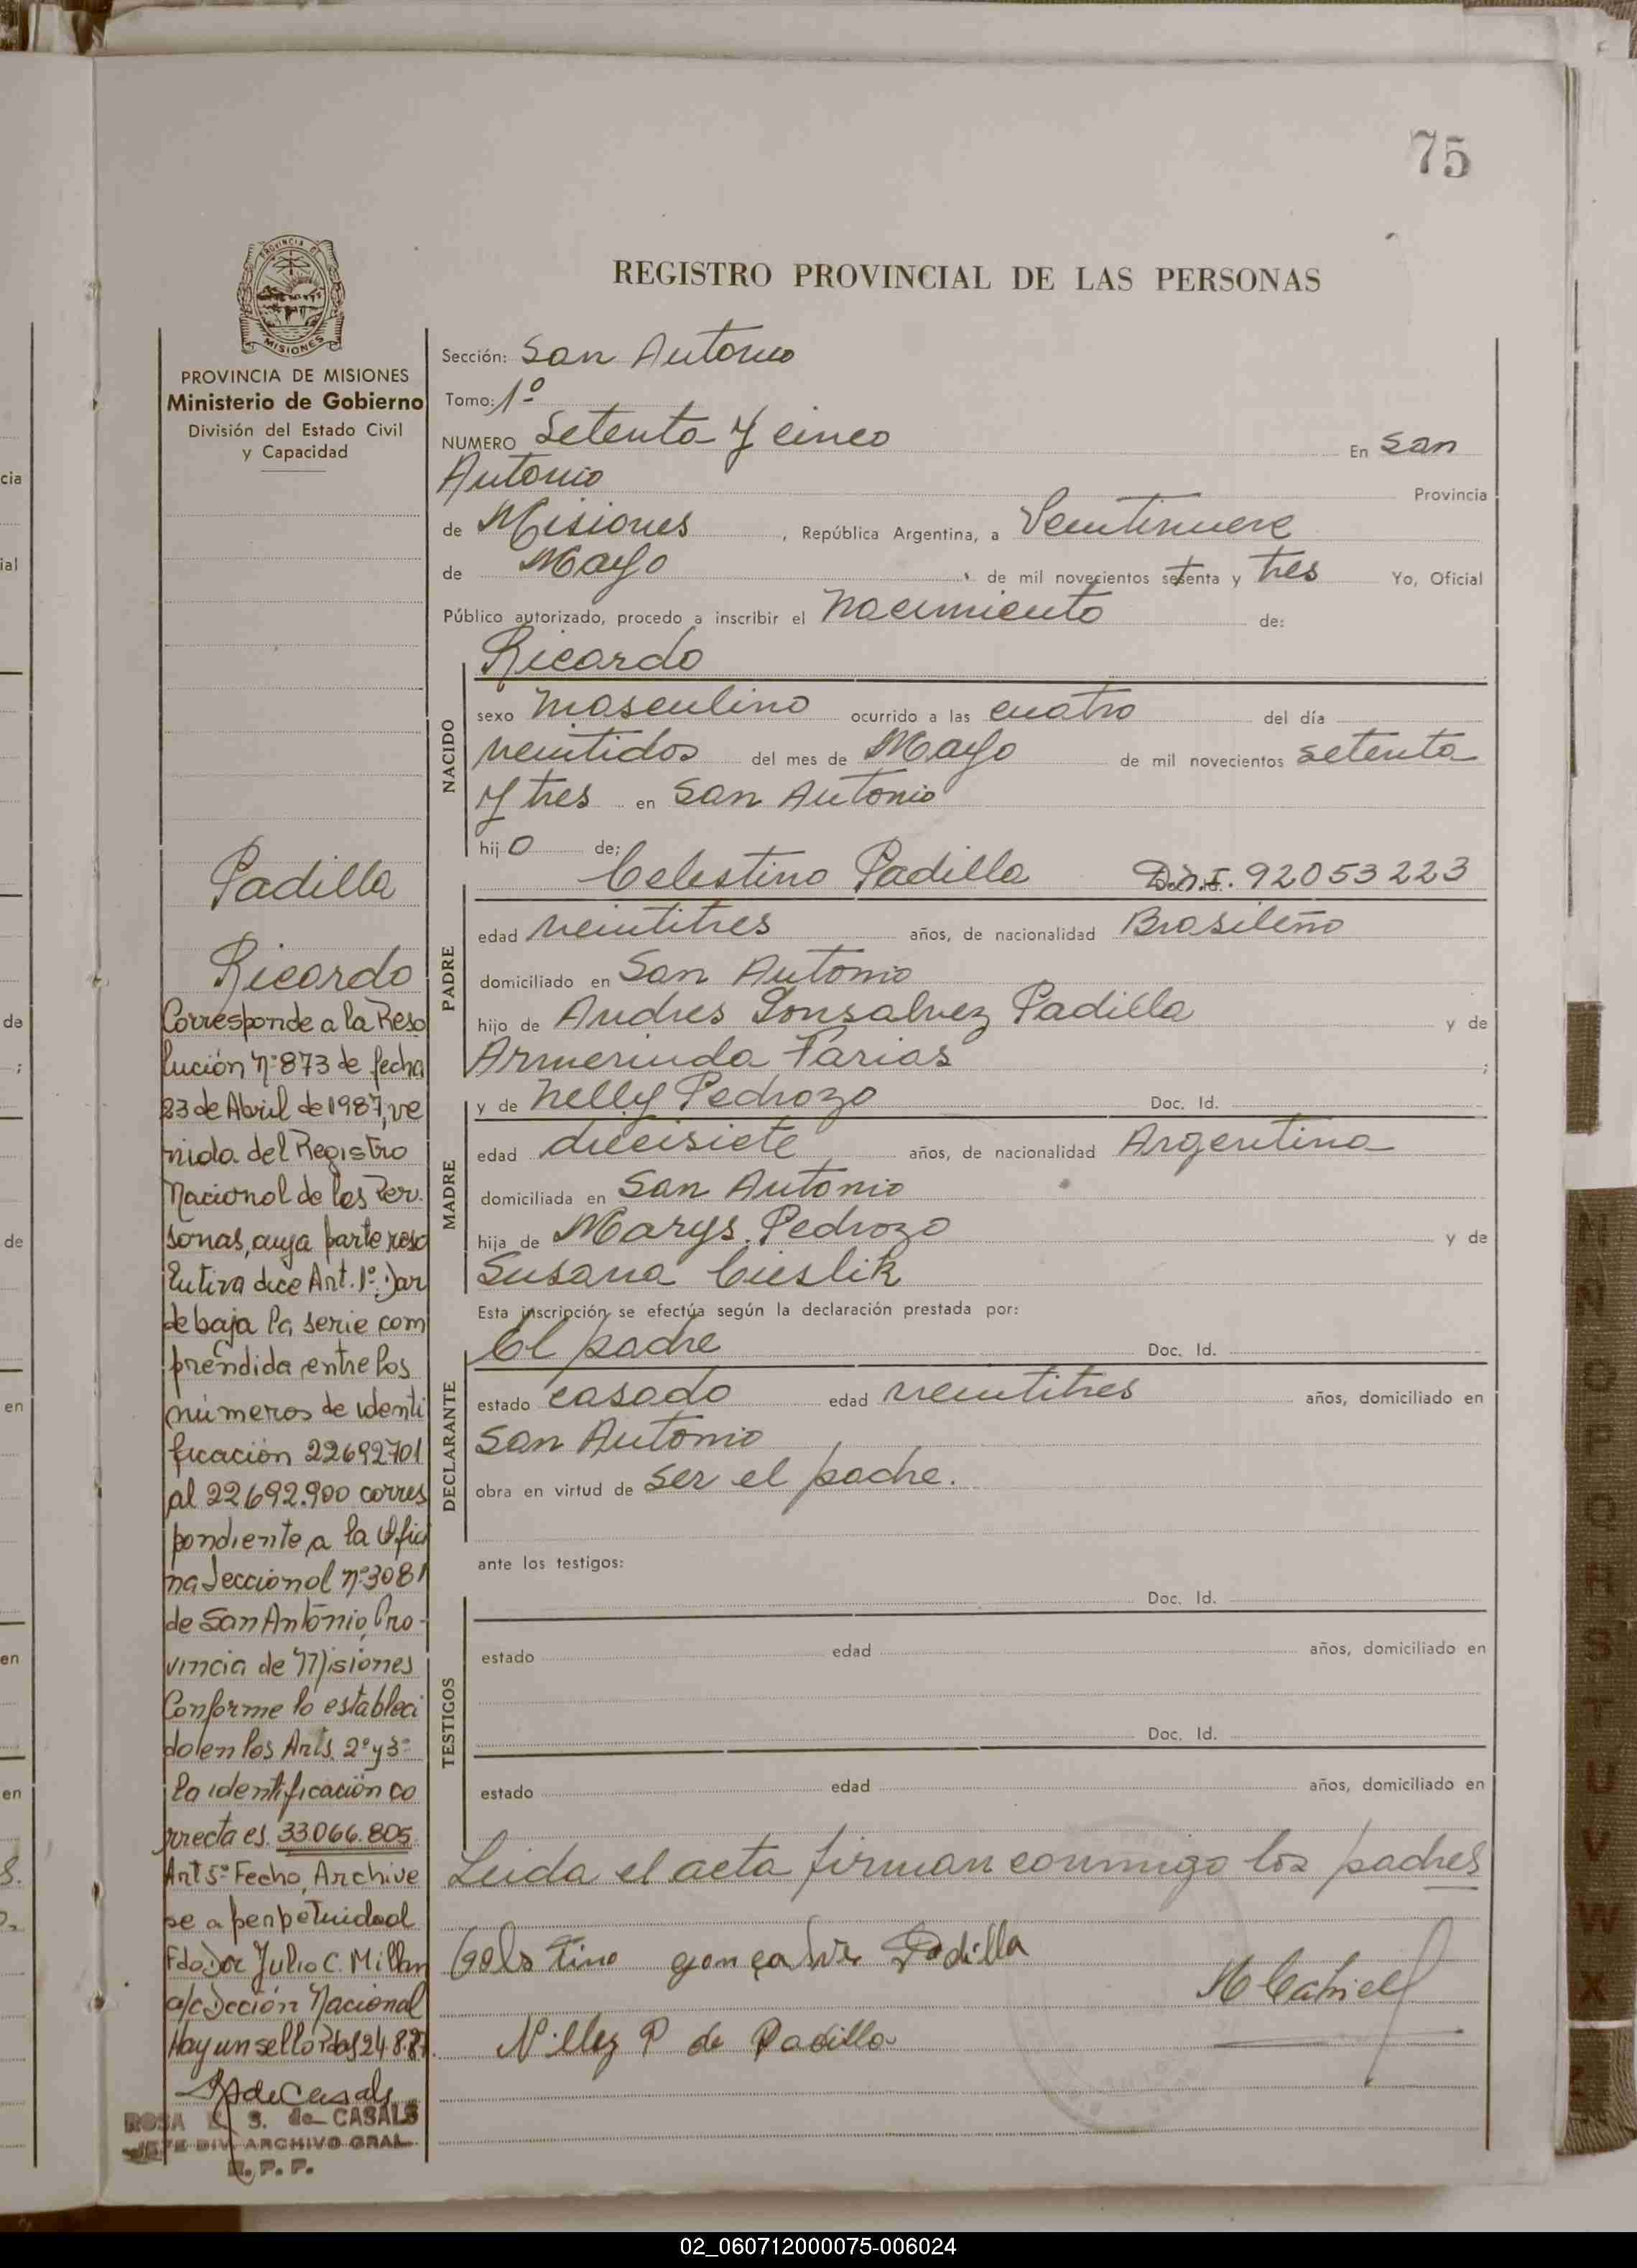 75
PROVINCIA DE
MISIONES
PROVINCIA DE MISIONES
Ministerio de Gobierno
División del Estado Civil
y Capacidad
Padilla
Ricardo
Corresponde a la Reso
lución nº 873 de fecha
23 de Abril de 1987, ve
nida del Registro
Nacional de las Per.
sonas, cuya parte reso
lutiva dice Art. 1º: Dar
de baja la serie com
prendida entre los
números de identi
ficación 22692701
al 22.692.900 corres
pondiente a la Ofici
na Seccional nº 3081
de San Antonio, Pro-
vincia de Misiones
Conforme lo estableci
do en los Arts. 2º y 3º
la identificación co
rrecta es. 33.066.805
Art 5º Fecho, Archive
se a perpetuidad
Fdo Dor Julio C. Millan
a/c Dcción Nacional
Hay un sello Pdas 24.8.87.
R de Casals
ROSA S. de CASALS
JEFE DIV. ARCHIVO GRAL.
R. P. P.
REGISTRO PROVINCIAL DE LAS PERSONAS
Sección: San Antonio
Tomo: 1º
NUMERO Setenta y cinco En San
Antonio Provincia
de Misiones, República Argentina, a Veintinueve
de Mayo, de mil novecientos setenta y tres Yo, Oficial
Público autorizado, procedo a inscribir el nacimiento de:
NACIDO
Ricardo
sexo masculino ocurrido a las cuatro del día
veintidos del mes de Mayo de mil novecientos setenta
y tres en San Antonio
hijo de:
PADRE
Celestino Padilla D.N.I. 92053223
edad veintitres años, de nacionalidad Brasileño
domiciliado en San Antonio
hijo de Andres Gonsalvez Padilla y de
Armerinda Farias ;
MADRE
y de Nelly Pedrozo Doc. Id.
edad diecisiete años, de nacionalidad Argentina
domiciliada en San Antonio
hija de Marys. Pedrozo y de
Susana Cieslik
Esta inscripción se efectúa según la declaración prestada por:
DECLARANTE
El padre Doc. Id.
estado casado edad veintitres años, domiciliado en
San Antonio
obra en virtud de ser el padre.
ante los testigos:
TESTIGOS
Doc. Id.
estado edad años, domiciliado en
Doc. Id.
estado edad años, domiciliado en
Leida el acta firman conmigo los padres
gonçalves Padilla
P de Padilla
cia
ial
de
;
de
en
en
en
M
N
O
P
Q
R
S
T
U
V
W
X
02_060712000075-006024